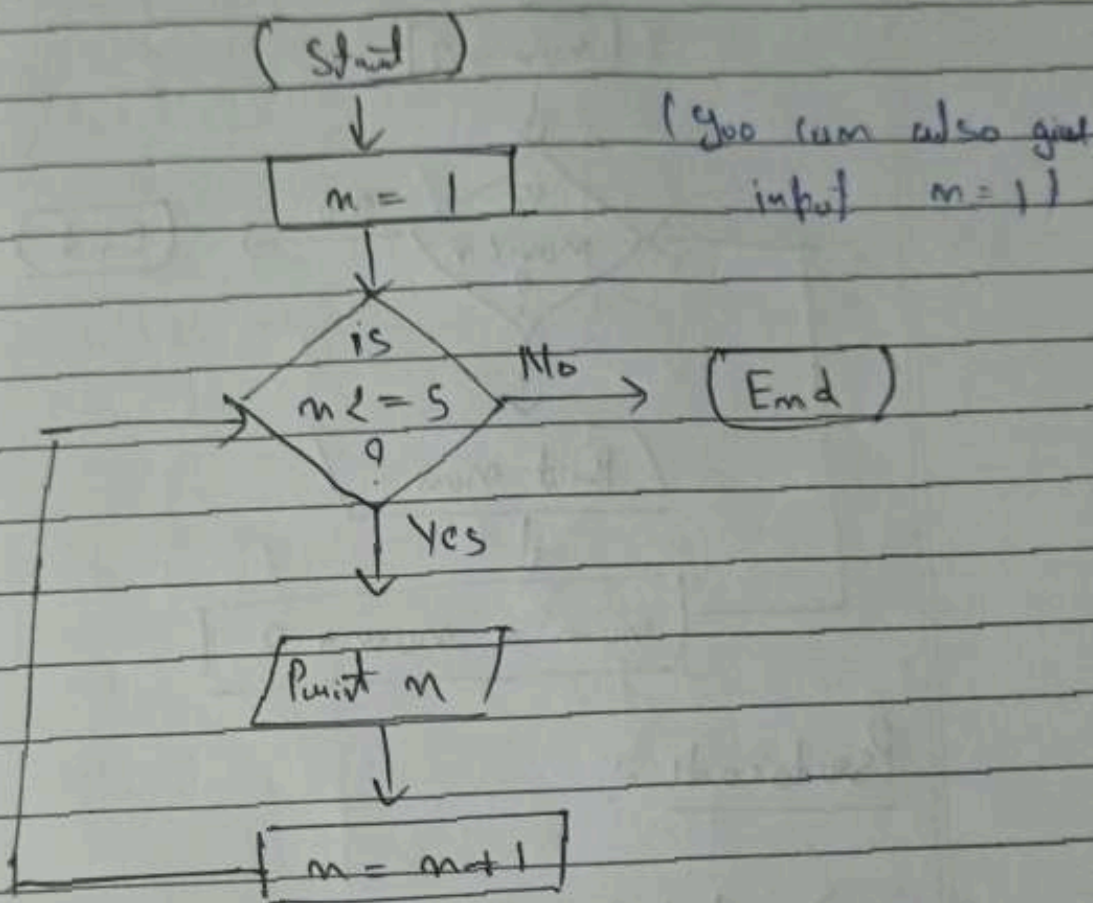 Start
n = 1
(you can also give
input n = 1)
is
n <= 5
?
No
End
Yes
Print n
n = n+1